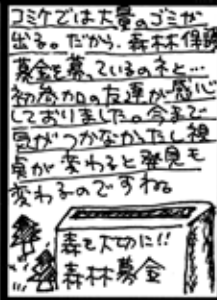 コミケでは大量のゴミが
出る。だから、森林保護
募金を募っているのネと…
初参加の友達が感心
しておりました。今まで
気がつかなかったし視
点が変わると発見も
変わるのですね。
森を大切に!!
森林募金